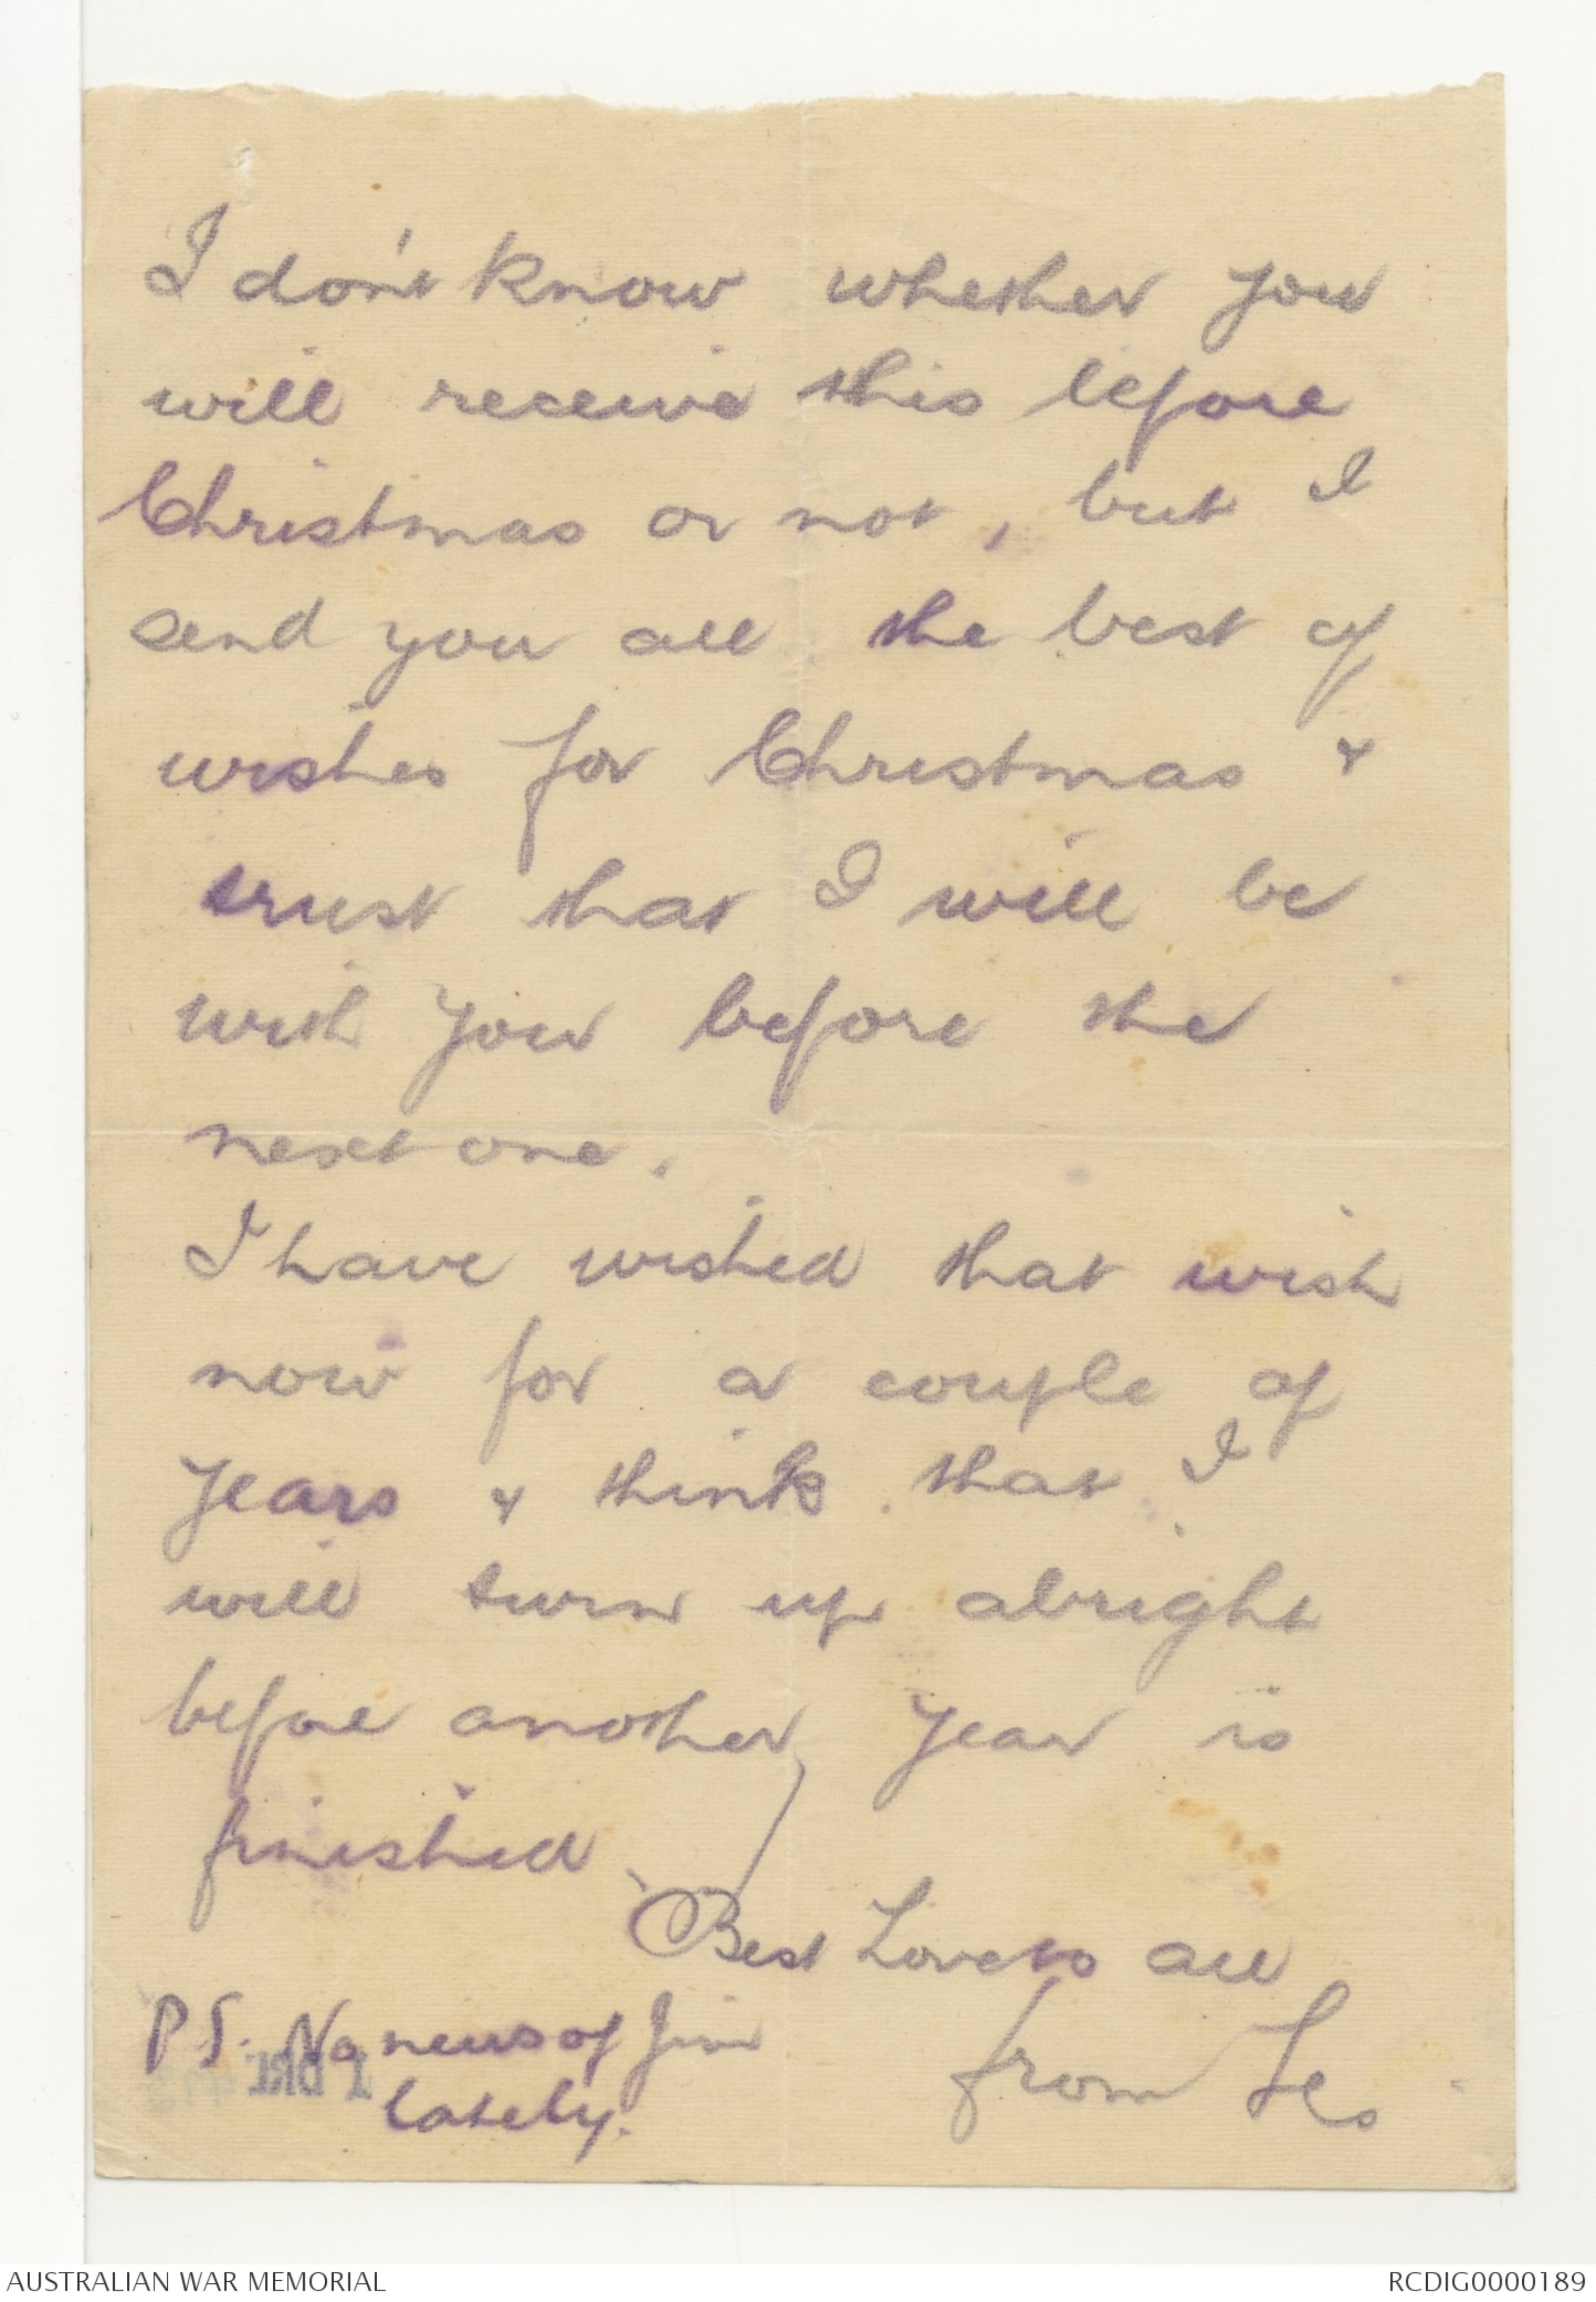 I don't know whether you
will receive this before
Christmas or not, but I
send you all the best of
wishes for Christmas &
trust that I will be
with you before the
next one.
I have wished that wish
now for a couple of
years & think that I
will turn up alright
before another year is
finished.
Best Love to all
from Les
PS. No news of Jim
lately.
1 DRL
AUSTRALIAN WAR MEMORIAL
RCDIG0000189